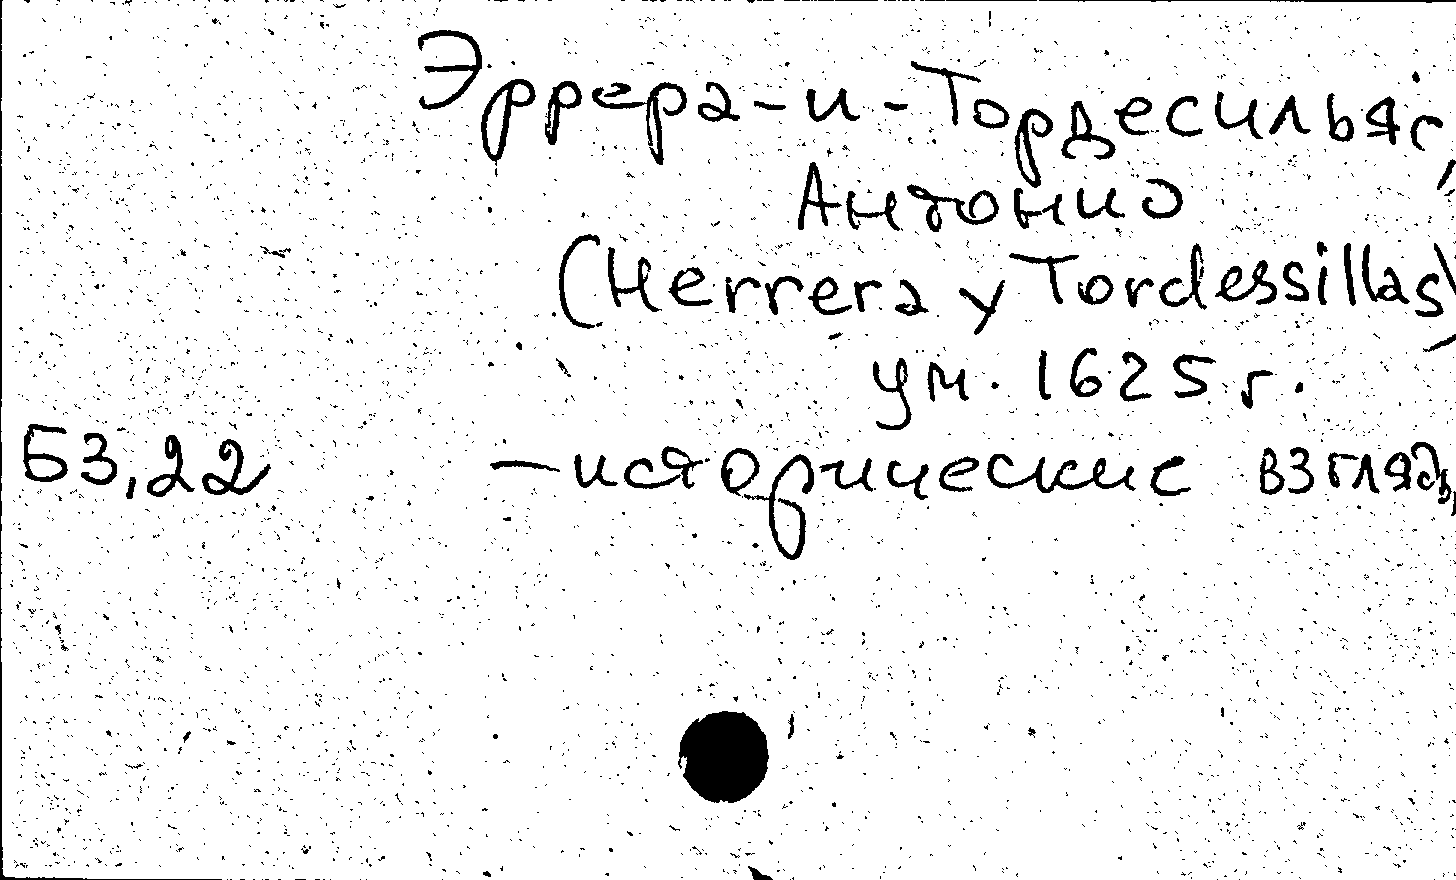 Эррера-и-Тордесильяс,
Антонио
(Herrera y Tordessillas),
ум. 1625 г.
Б3,22 — исторические взгляды